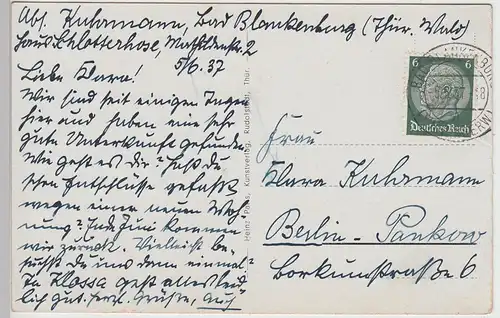 Abs. Kuhrmann, Bad Blankenburg (Thür. Wald)
Haus Schlotterhose,
5/6.37
Liebe Klara!
Wir sind seit einigen Tagen
hier und haben eine sehr
gute Unterkunft gefunden.
Wie geht es dir? Hast du
schon Entschlüsse gefaßt
wegen einer neuen Woh-
nung? Ende Juni kommen
wir zurück. Vielleicht be-
suchst du uns dann einmal?
In geht alles leid-
lich gut. Herzl. Grüße,
Heinz Kunstverlag, Rudolstadt, Thür.
6 6
Deutsches Reich
Frau
Klara Kuhrmann
Berlin-Pankow
Borkumstraße 6